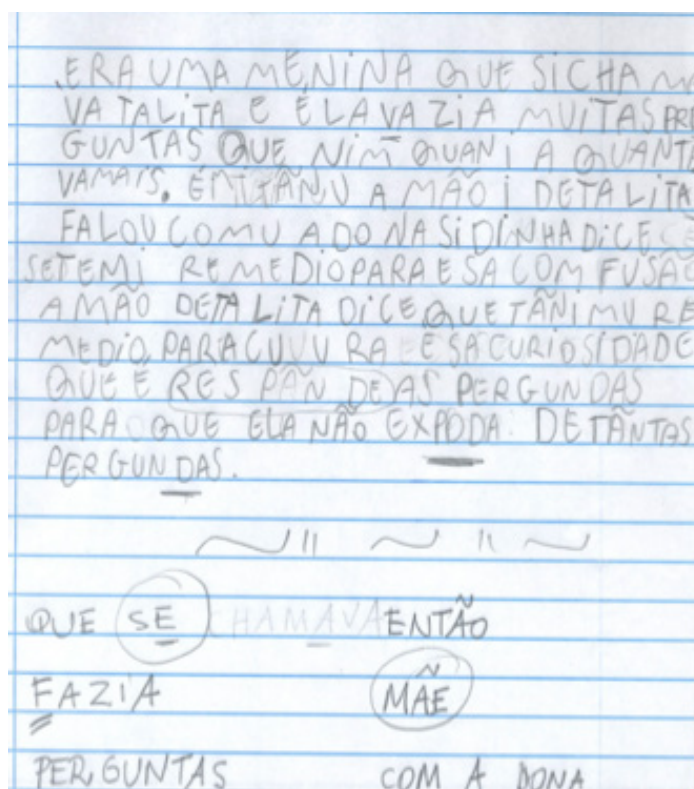 ERA UMA MENINA QUE SICHAM
VA TALITA E ELA VAZIA MUITAS PRE
GUNTAS QUE NIM QUANI A QUANTA
VAMAIS. A MÃO I DETALITA
FALOU COMU A DO NA SIDINHA DICE
SETEMI REMEDIO PARA ESA COMFUSÃO
A MÃO DETALITA DICE QUE TÃNIMU RE
MEDIO, PARA ESA CURIOSIDADE
QUE E RESPÃNDE AS PERGUNDAS
PARA QUE ELA NÃO EXPODA DETÃNTAS
PERGUNDAS.
QUE SE CHAMAVA ENTÃO
FAZIA MÃE
PERGUNTAS COM A DONA